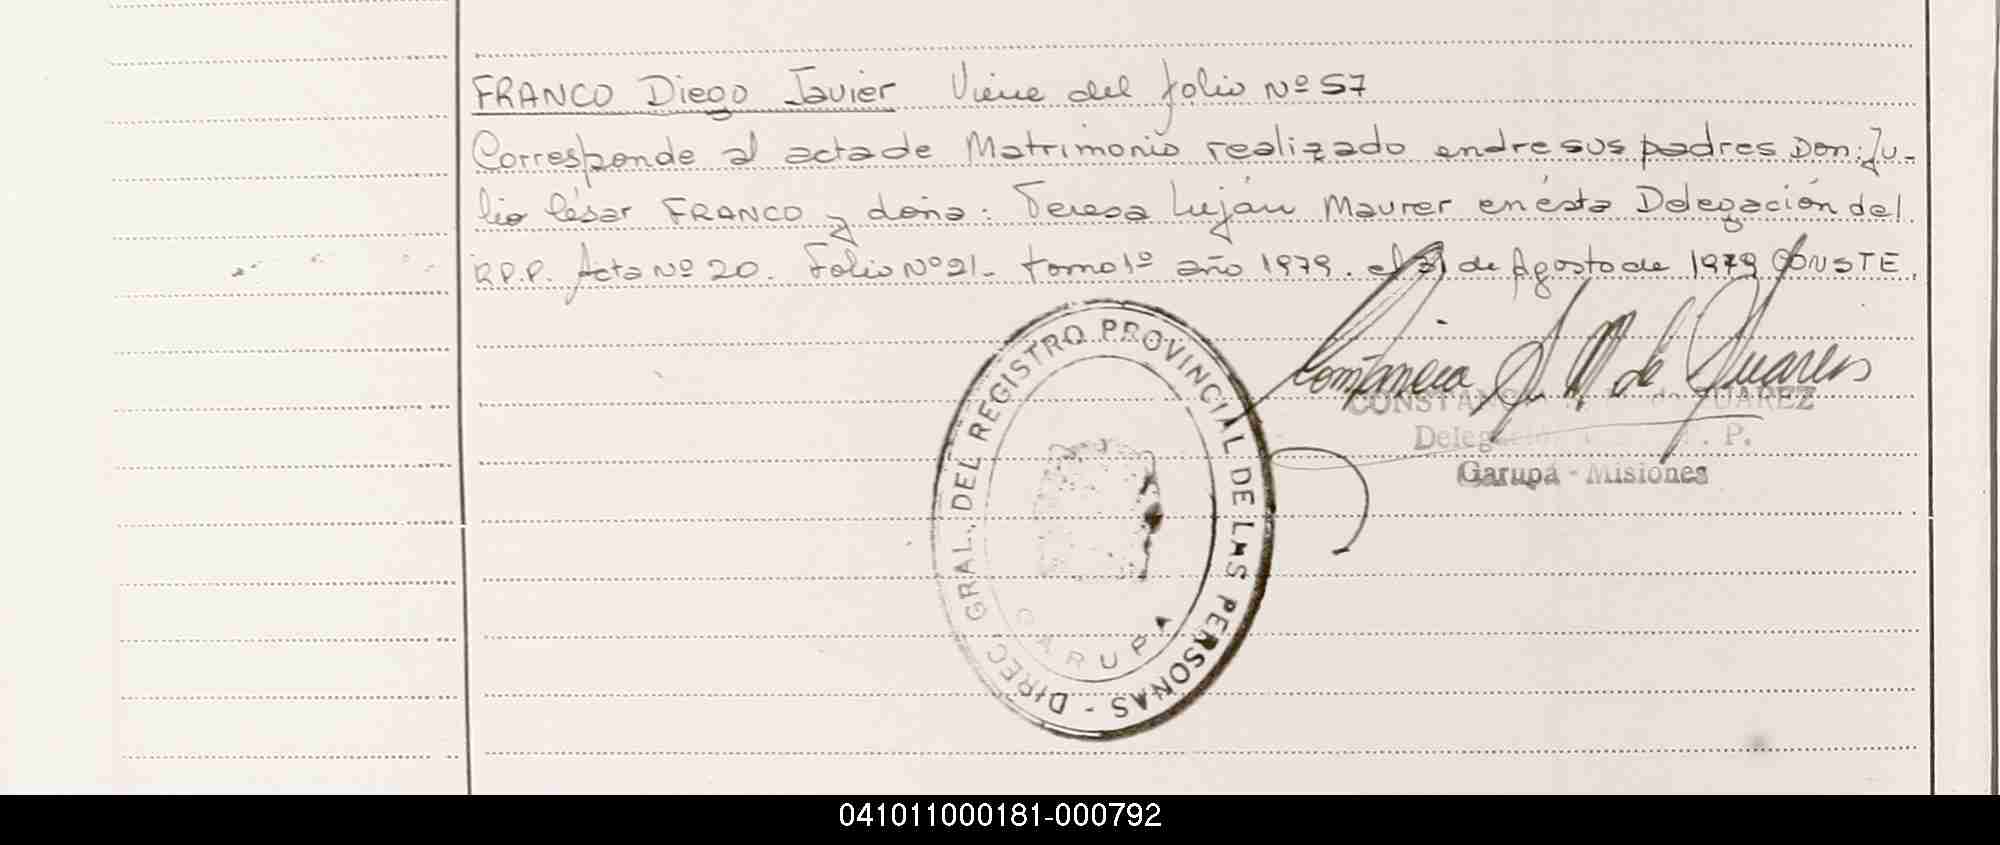 FRANCO Diego Javier Viene del folio Nº 57
Corresponde al acta de Matrimonio realizado endre sus padres Don: Ju-
lio César FRANCO y doña: Teresa Luján Maurer en ésta Delegación del
R.P.P. Acta Nº 20. Folio Nº 21. tomo 1º año 1979. el de Agosto de 1979 CONSTE.
Constancia de Suarez
CONSTANCIA de SUAREZ
Delegación P.
Garupá - Misiones
DIREC. GRAL. DEL REGISTRO PROVINCIAL DE LAS PERSONAS -
GARUPA
041011000181-000792